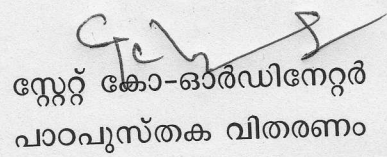 സ്റ്റേറ്റ് കോ-ഓർഡിനേറ്റർ
പാഠപുസ്തക വിതരണം